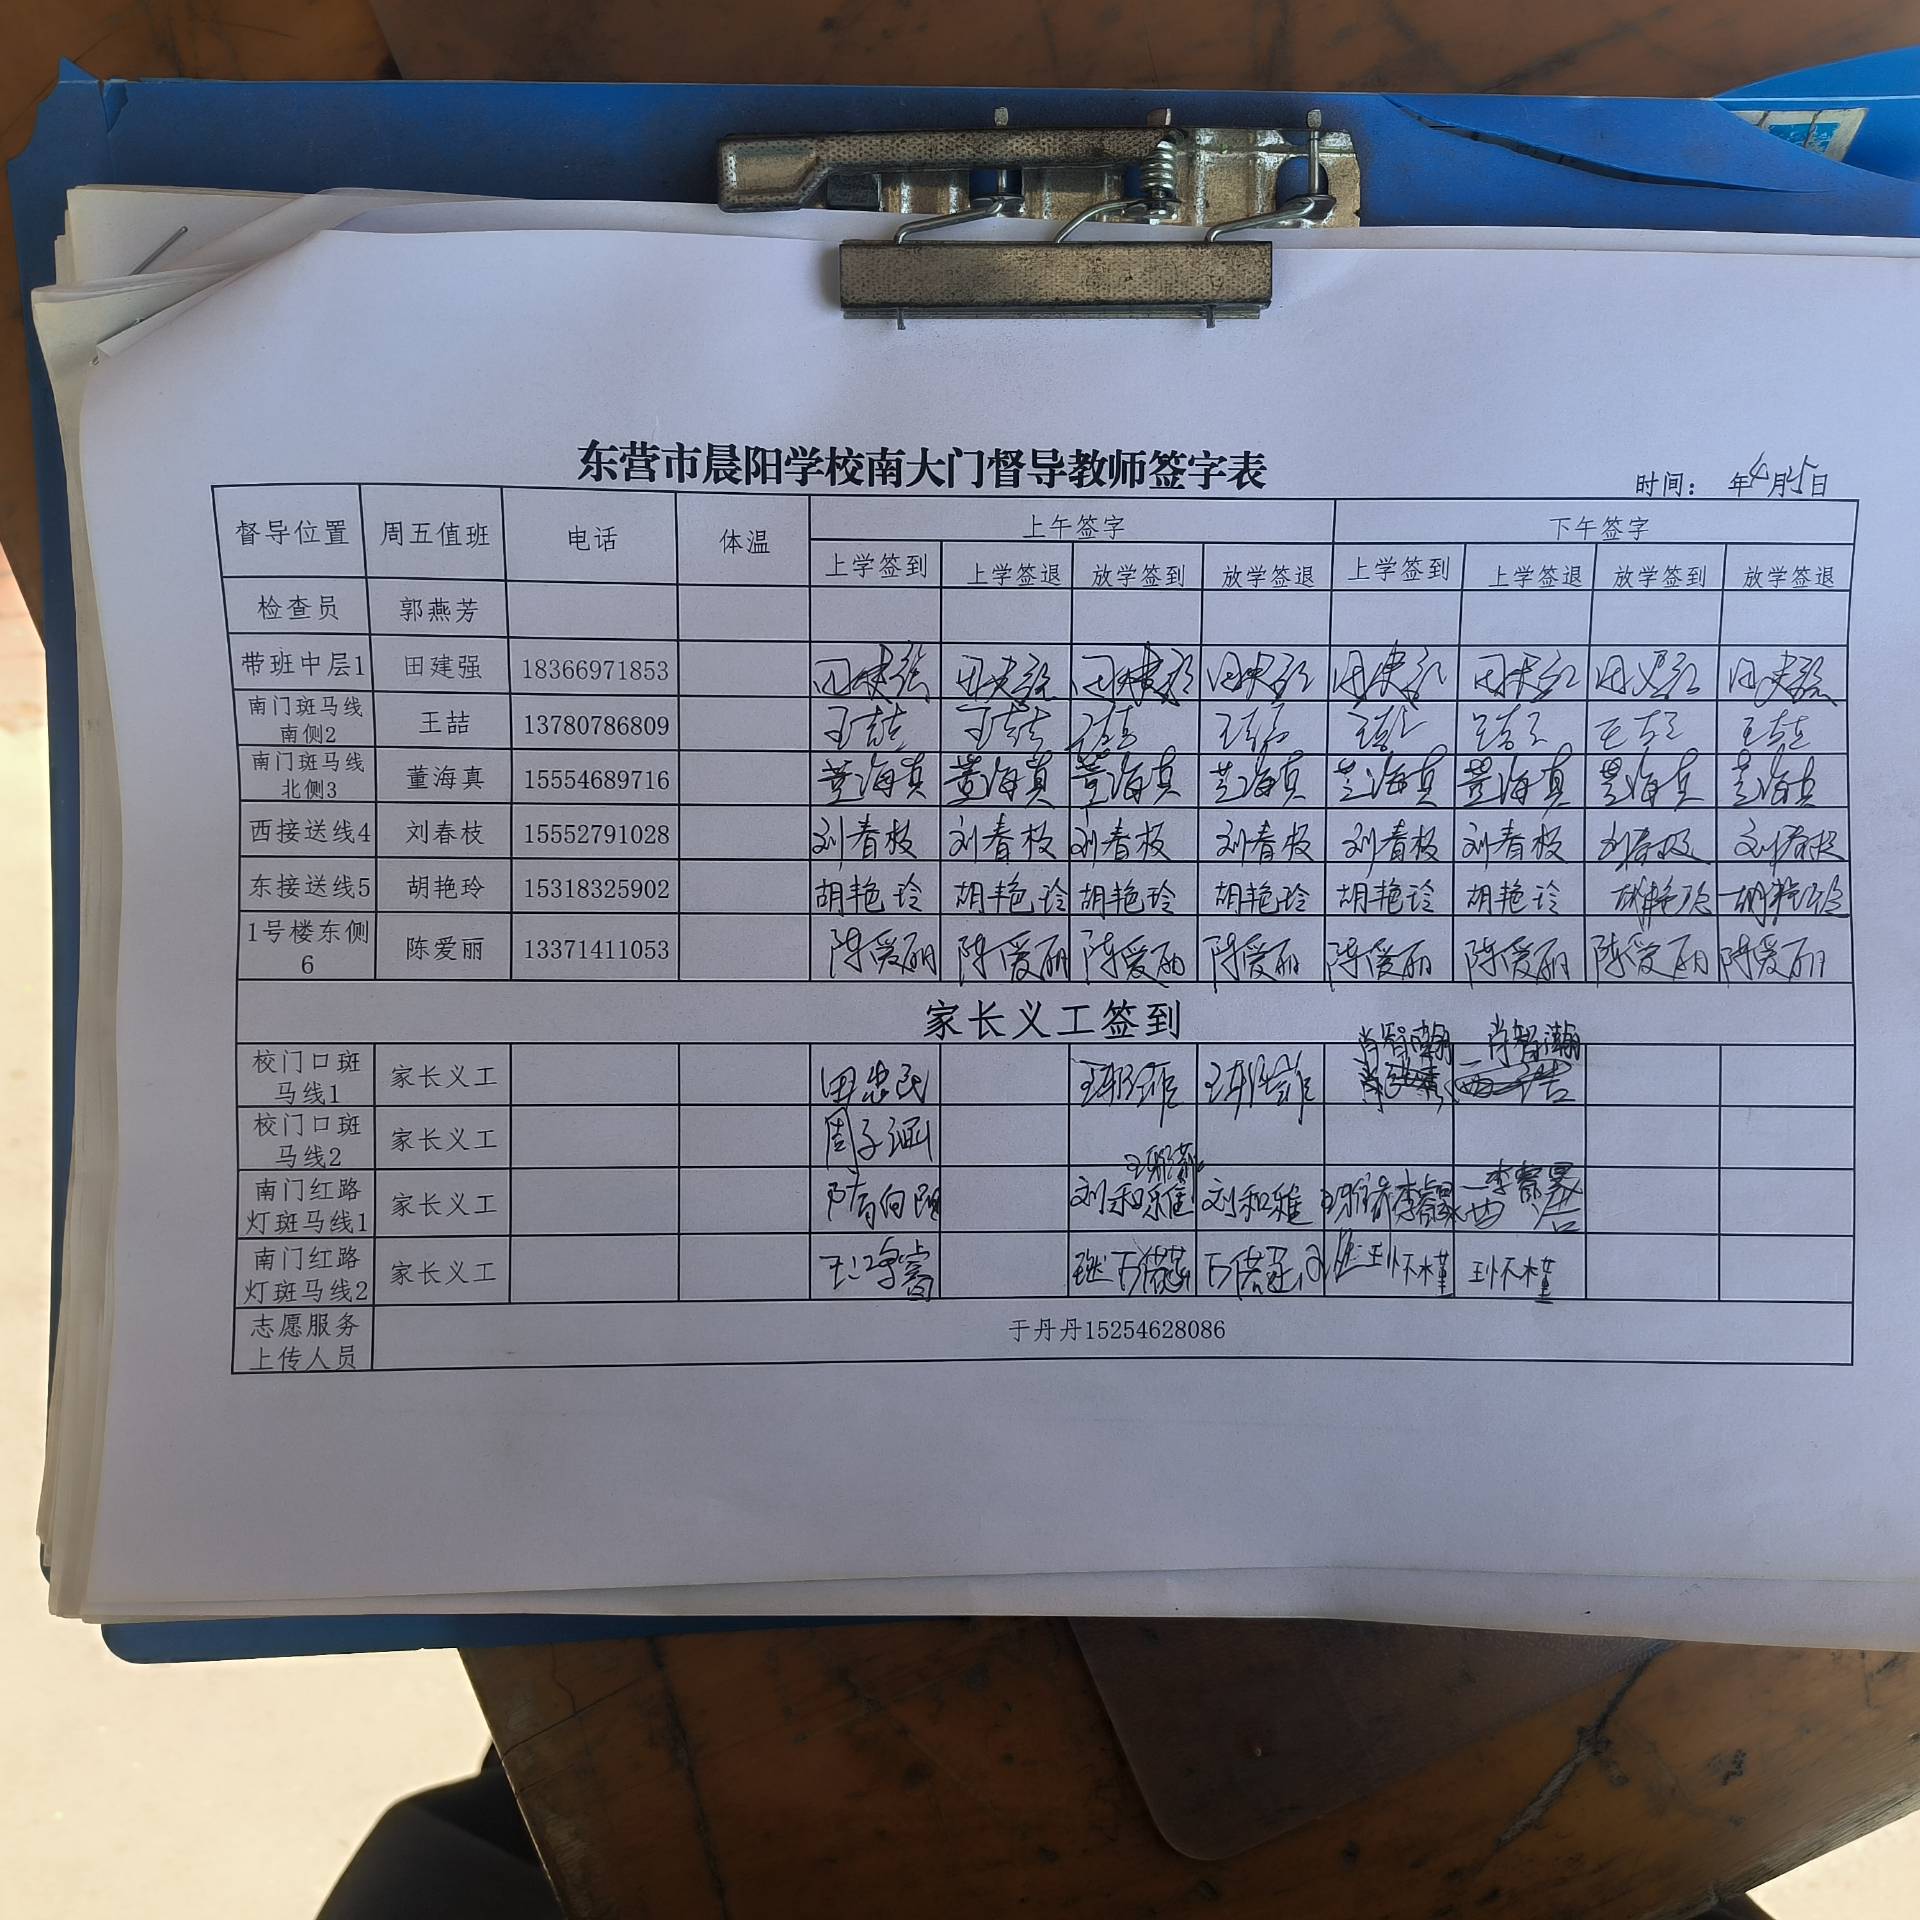 东营市晨阳学校南大门督导教师签字表
时间： 年4月25日
督导位置 周五值班 电话 体温 上午签字 下午签字
上学签到 上学签退 放学签到 放学签退 上学签到 上学签退 放学签到 放学签退
检查员 郭燕芳
带班中层1 田建强 18366971853 田建强 田建强 田建强 田建强 田建强 田建强 田建强 田建强
南门斑马线南侧2 王喆 13780786809 王喆 王喆 王喆 王喆 王喆 王喆 王喆 王喆
南门斑马线北侧3 董海真 15554689716 董海真 董海真 董海真 董海真 董海真 董海真 董海真 董海真
西接送线4 刘春枝 15552791028 刘春枝 刘春枝 刘春枝 刘春枝 刘春枝 刘春枝 刘春枝 刘春枝
东接送线5 胡艳玲 15318325902 胡艳玲 胡艳玲 胡艳玲 胡艳玲 胡艳玲 胡艳玲 胡艳玲 胡艳玲
1号楼东侧6 陈爱丽 13371411053 陈爱丽 陈爱丽 陈爱丽 陈爱丽 陈爱丽 陈爱丽 陈爱丽 陈爱丽
家长义工签到
校门口斑马线1 家长义工 田忠民 肖智瀚 肖智瀚
校门口斑马线2 家长义工 周子涵
南门红路灯斑马线1 家长义工 隋向阳 刘和雅 刘和雅
南门红路灯斑马线2 家长义工 王怀槿 王怀槿
志愿服务上传人员 于丹丹15254628086